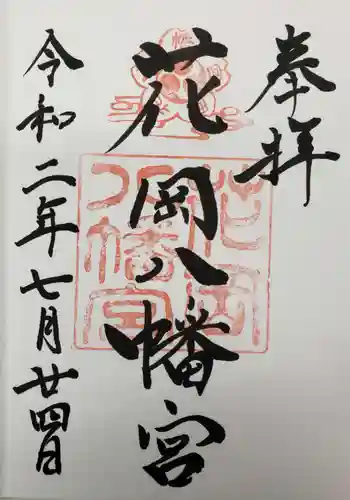 奉拝
花岡八幡宮
令和二年七月廿四日
花岡
八幡宮